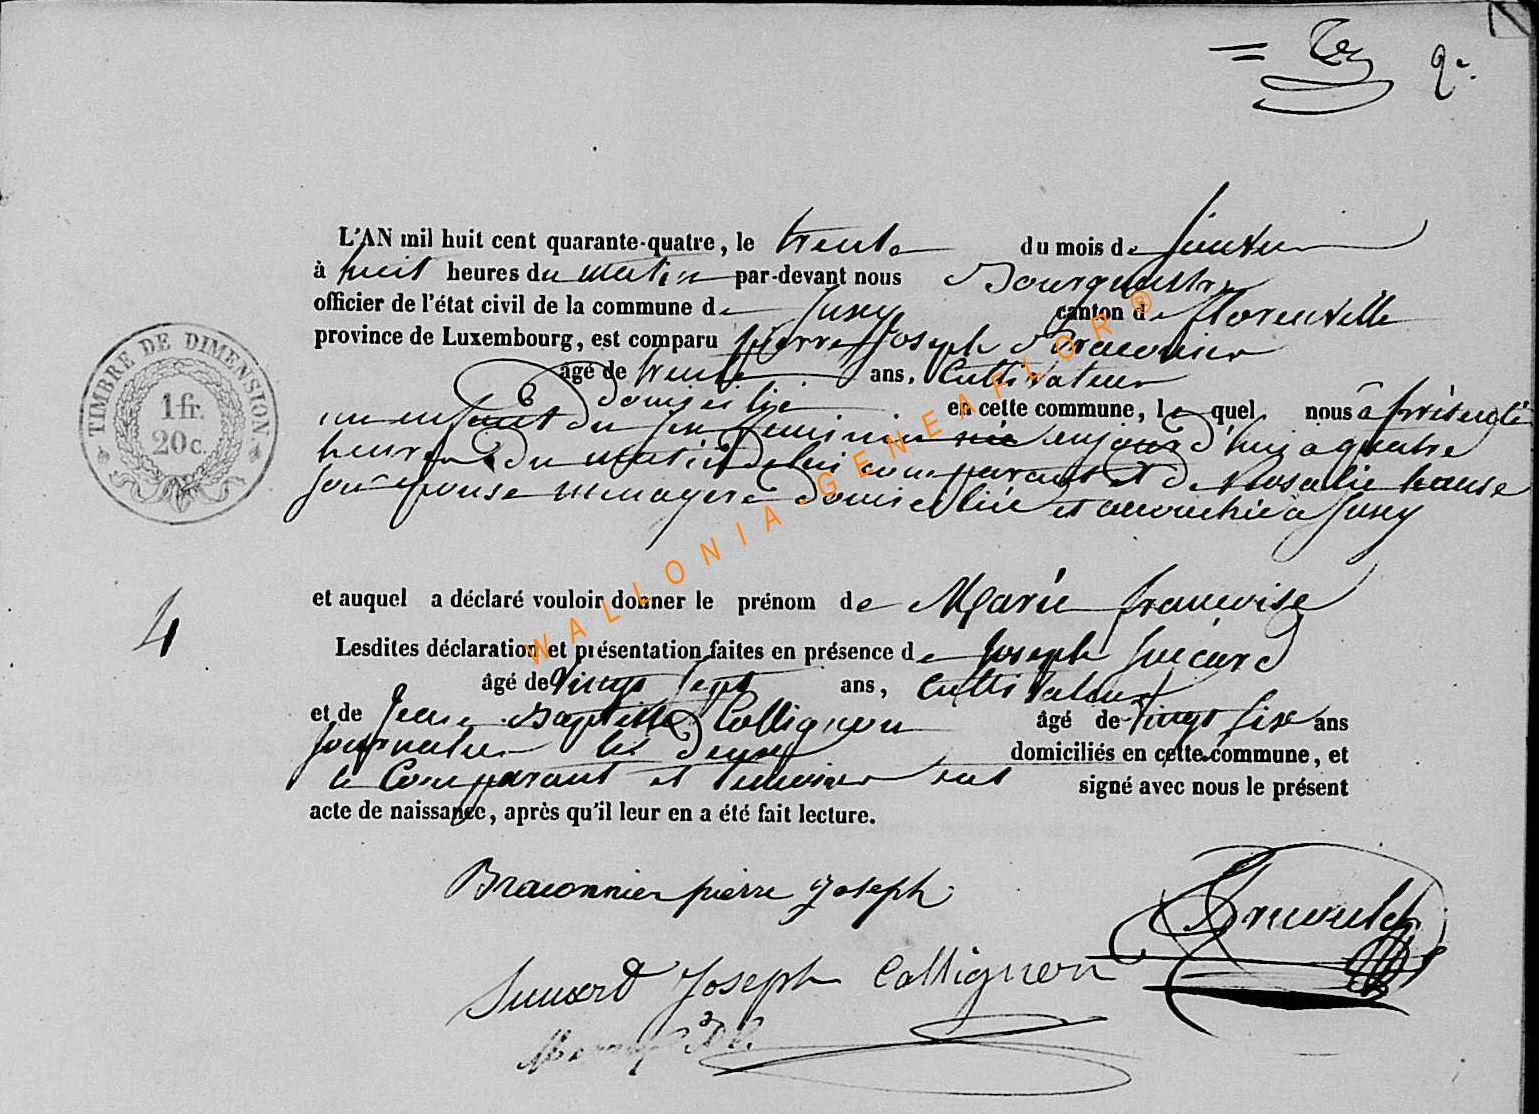 2e.
L'AN mil huit cent quarante-quatre, le trente du mois de janvier
à huit heures du matin par-devant nous Bourgmestre
officier de l'état civil de la commune de Jusey canton de florenville
province de Luxembourg, est comparu pierre Joseph Braconnier
âgé de trente ans, Cultivateur
domicilié en cette commune, lequel nous a présenté
un enfant du sex feminin née aujourd'hui a quatre
heures du matin de lui comparant et de Rosalie hause
son épouse menagere domiciliée et accouchée a Jusey
4
et auquel a déclaré vouloir donner le prénom de Marie francoise
Lesdites déclaration et présentation faites en présence de Joseph
âgé de vingt sept ans, Cultivateur
et de Jean Baptiste Collignon âgé de vingt six ans
journalier les deux domiciliés en cette commune, et
le Comparant et temoins ont signé avec nous le présent
acte de naissance, après qu'il leur en a été fait lecture.
Braconnier pierre Joseph
Joseph Collignon
TIMBRE DE DIMENSION
1 fr.
20 c.
WALLONIA-GENEAFLOR®